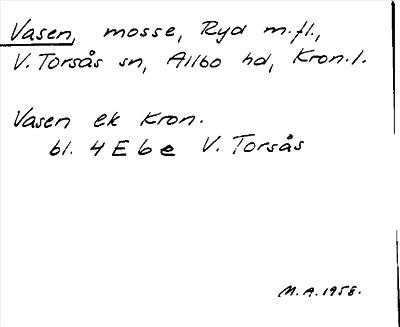 Vasen, mosse, Ryd m.fl.,
V. Torsås sn, Allbo hd, Kron.l.
Vasen ek Kron.
bl. 4 E 6 e V. Torsås
M.A. 1958.